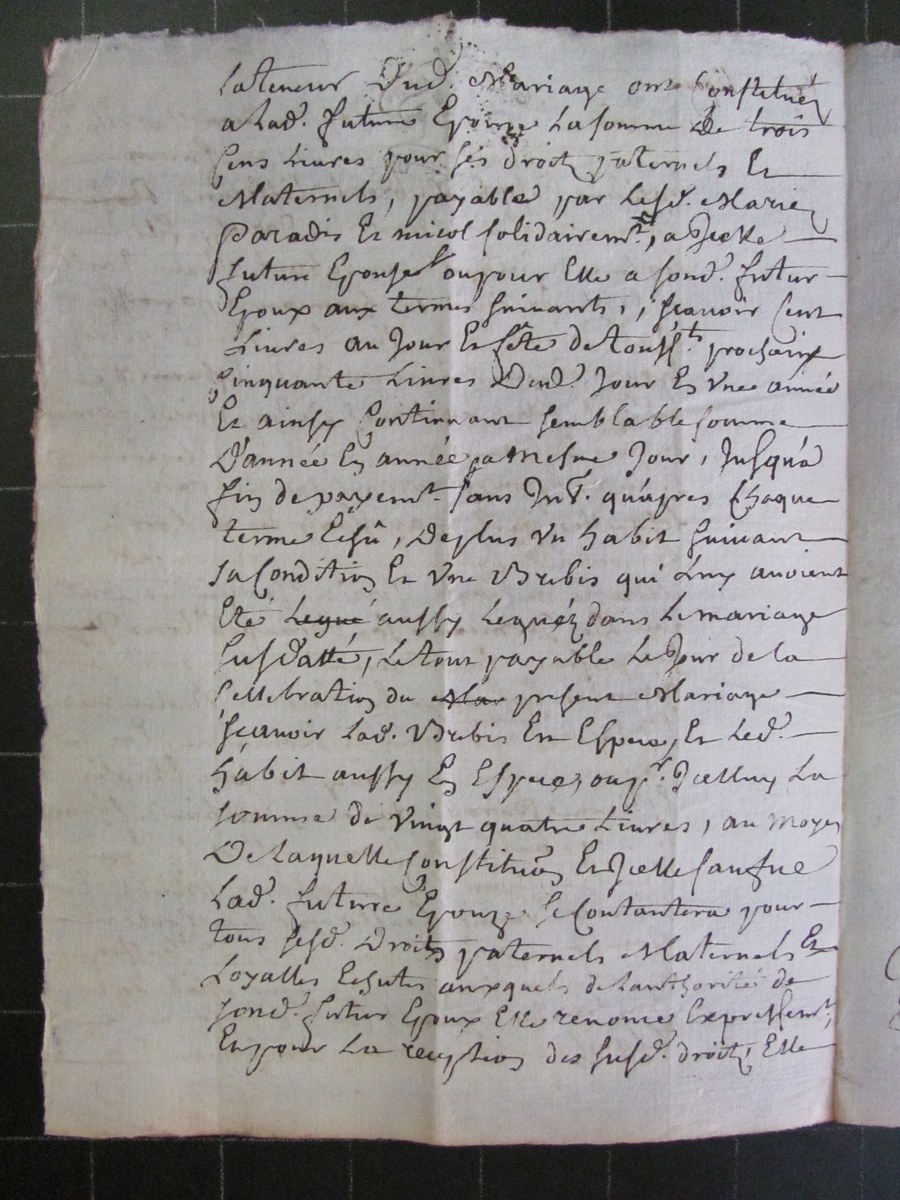 lateneur Dud. Mariage ont Constituéz
a Lad. future Epouze La somme De trois
Cens Livres pour ses droitz paternels Et
Maternels, payable par Lesd. Mariez
Paradis Et micol solidairemt., a Jcelle
future Epouse ou pour Elle a sond. futur
Epoux aux termes suivants, scavoir Cent
Livres au Jour Et fête de toussts. prochain
Cinquante Livres Dud. Jour En Vne année
Et ainsy Continuant semblable somme
D'année En année a Mesme Jour, Jusqu'a
fin de payemt. sans Int. qu'apres Chaque
terme Echû, Deplus vn habit suivant
sa Condition Et Vne Brebis qui Luy avoient
Eté Legué aussy Leguéz dans Le mariage
susdatté, Le tout payable Le Jour de la
Cellebration du Mar present Mariage
scavoir Lad. Brebis En Espece, Et Led.
habit aussy En Espece, ou pr. Jcelluy La
somme de vingt quatre Livres, au moyen
De Laquelle Constitution Et Jcelle
Lad. future Epouze se Contantera pour
tous sesd. Droits paternels Maternels Et
Loyalles Echutes auxquels de Lauthorité de
sond. futur Epoux Elle renonce Expressemt.,
Et pour La reception des susd. droitz, Elle